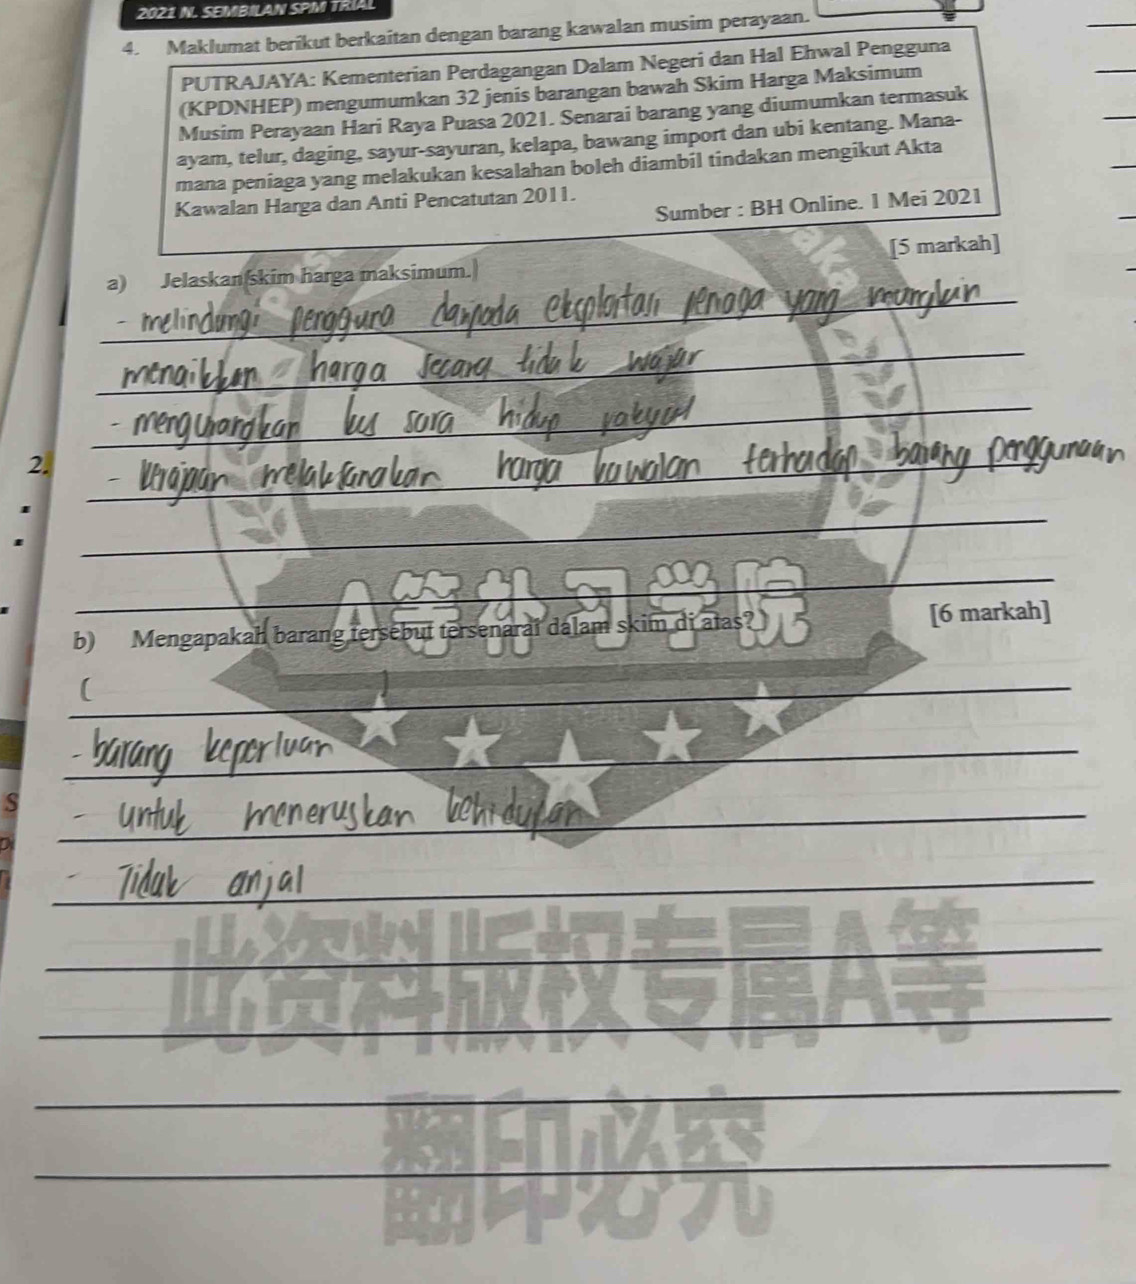 2021 N. SEMBILAN SPM TRIAL
4. Maklumat berikut berkaitan dengan barang kawalan musim perayaan.
PUTRAJAYA: Kementerian Perdagangan Dalam Negeri dan Hal Ehwal Pengguna
(KPDNHEP) mengumumkan 32 jenis barangan bawah Skim Harga Maksimum
Musim Perayaan Hari Raya Puasa 2021. Senarai barang yang diumumkan termasuk
ayam, telur, daging, sayur-sayuran, kelapa, bawang import dan ubi kentang. Mana-
mana peniaga yang melakukan kesalahan boleh diambil tindakan mengikut Akta
Kawalan Harga dan Anti Pencatutan 2011.
Sumber : BH Online. 1 Mei 2021
[5 markah]
a) Jelaskan skim harga maksimum.
- melindungi pengguna daripada eksploitasi penaga yang mungkin
mengikkan harga secara tidak wajar
- mengurangkan kus sara hidup rakyat
2.
- kerajaan melaksanakan harga kawalan terhadap barang penggunaan
A等补习学院
b) Mengapakah barang tersebut tersenarai dalam skim di atas?
[6 markah]
(
- barang keperluan
- untuk meneruskan kehidupan
- Tidak anjal
此资料版权专属A等
翻印必究